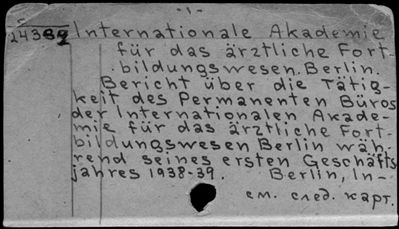 -1-
24389 Internationale Akademie
für das ärztliche Fort-
bildungswesen. Berlin.
Bericht über die Tätig-
keit des Permanenten Büros
der Internationalen Akade-
mie für das ärztliche Fort-
bildungswesen Berlin wäh-
rend seines ersten Geschäfts
jahres 1938-39. Berlin, In-
см. след. карт.